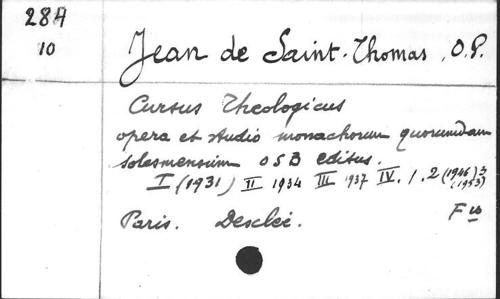 284
10
Jean de Saint-Thomas, O.P.
Cursus Theologicus
opera et studio monachorum quorumdam
solesmensium OSB editus.
I (1931) II 1934 III 1937 IV. 1. 2 (1946) 3 (1953)
Paris. Desclée. F